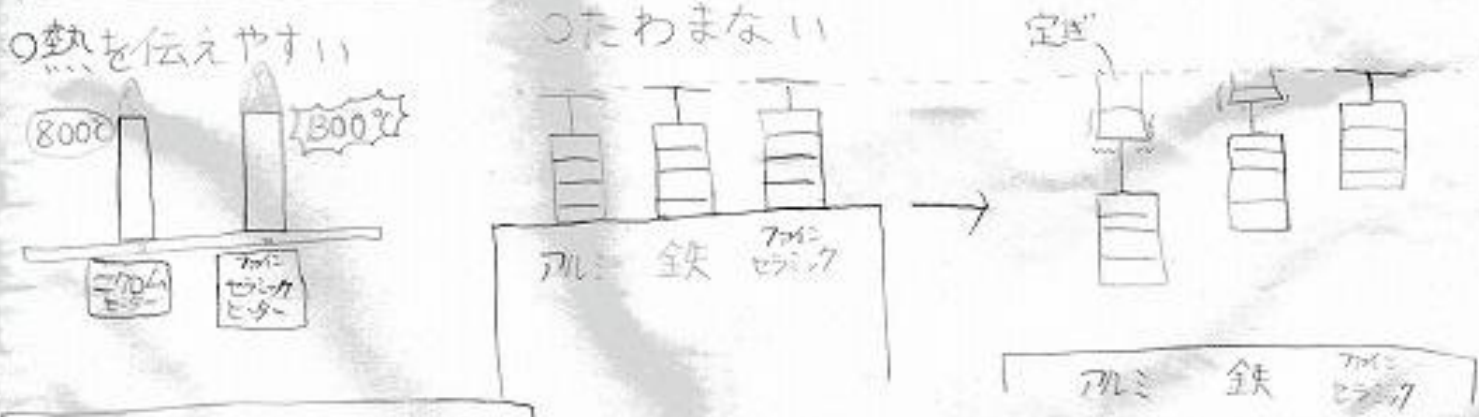 ○熱を伝えやすい
800℃
1300℃
ニクロム
ヒーター
ファイン
セラミック
ヒーター
○たわまない
アルミ
鉄
ファイン
セラミック
定ぎ
アルミ
鉄
ファイン
セラミック